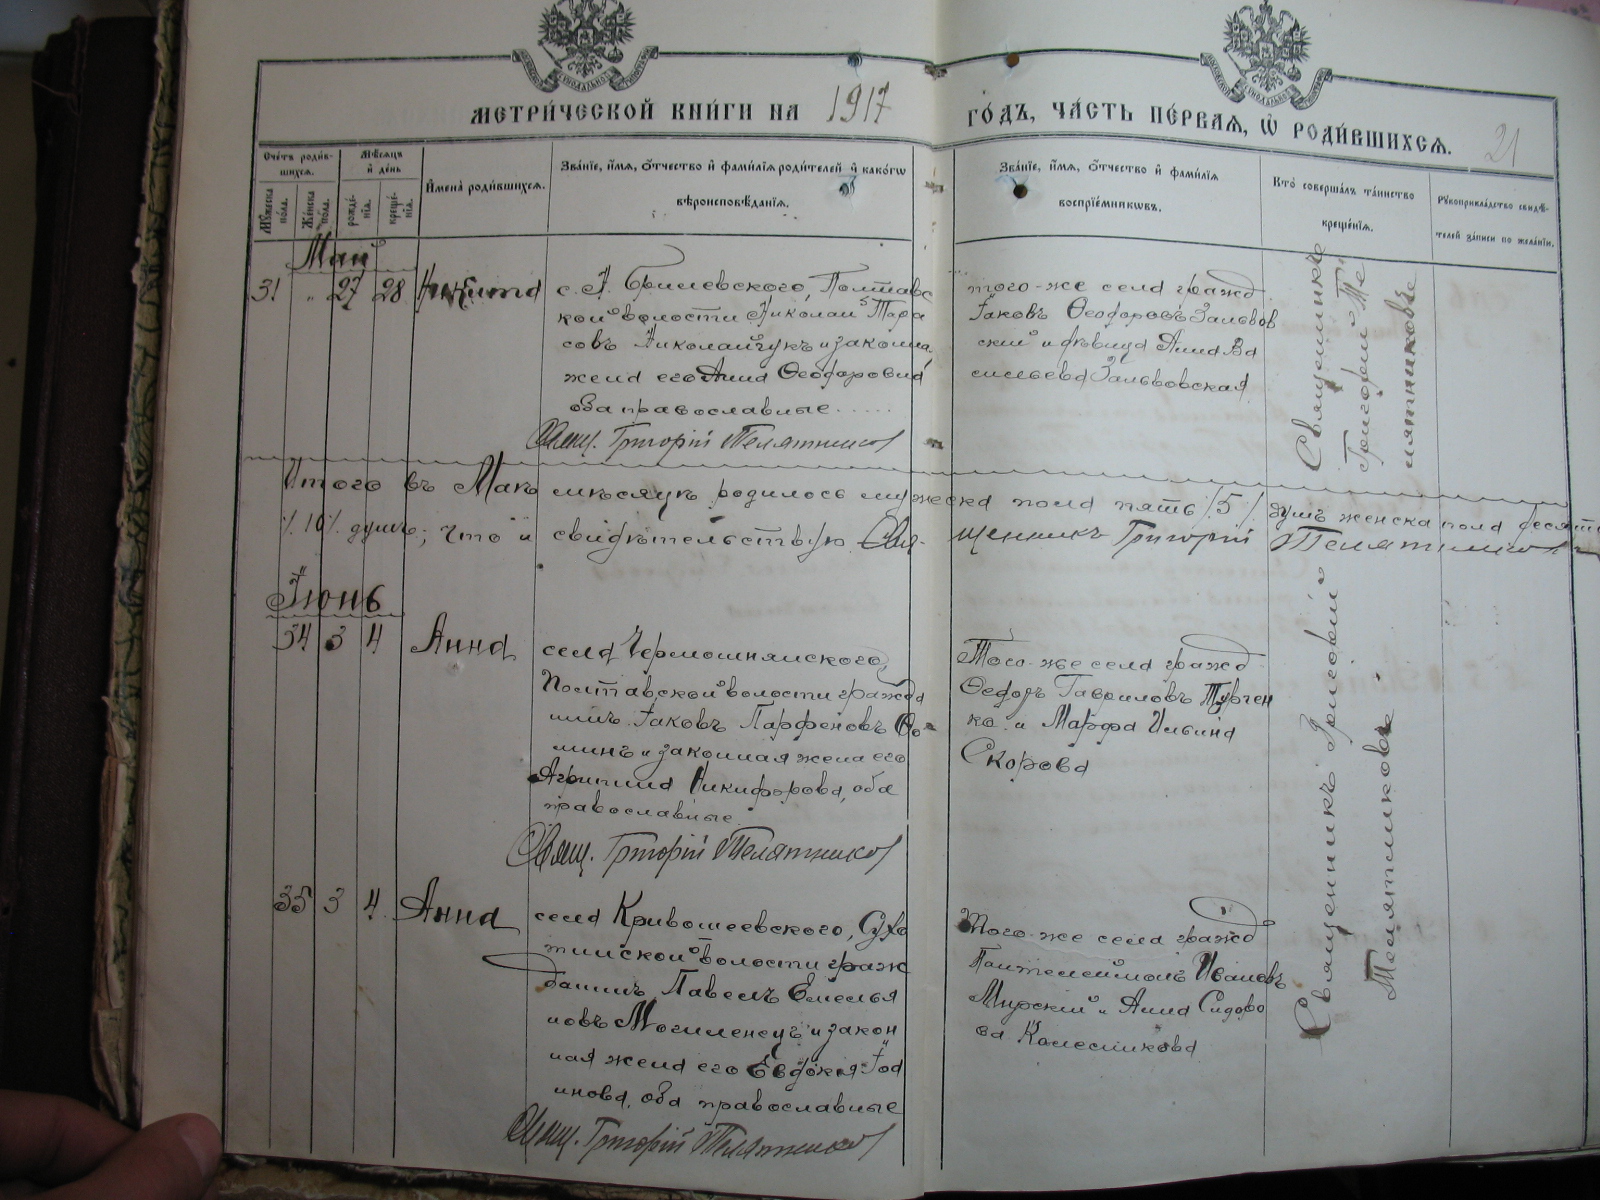 МЕТРИ́ЧЕСКОЙ КНИ́ГИ НА 1917 ГО́ДЪ, ЧА́СТЬ ПЕ́РВАѦ, Ѡ҆ РОДИ́ВШИХСѦ. 21
Сче́тъ роди́в-
шихсѧ.
Му́жеска по́ла.
Же́нска по́ла.
Мѣ́сѧцъ
и҆ де́нь
рожде́-
нїѧ.
креще́-
нїѧ.
И҆мена̀ роди́вшихсѧ.
Зва́нїе, и҆́мѧ, ѻ҆́тчество и҆ фами́лїѧ роди́телей и҆ како́гѡ
вѣроисповѣ́данїѧ.
Зва́нїе, и҆́мѧ, ѻ҆́тчество и҆ фами́лїѧ
воспрїе́мникѡвъ.
Кто̀ соверша́лъ та́инство
креще́нїѧ.
Рꙋкоприкла́дство свидѣ́-
телей за́писи по жела́нїю.
Май
31 " 27 28 Никита
с. Н. Брилевского, Полтавс
кой волости Николай Тара
совъ Николайчукъ и законна.
жена его Анна Ѳеодоровна
оба православные .....
Свящ. Григорій Телятников
того-же села гражд
Іаковъ Ѳеодоровъ Зальвов
скій и дѣвица Анна Ва
сильева Зальвовская
Священникъ
Григорій Те
лятниковъ
Итого въ Маѣ мѣсяцѣ родилось мужеска пола пять /5/ душъ женска пола десять
/10/ душъ; что и свидѣтельствую Свя- щенникъ Григорій Телятников
Іюнь
34 3 4 Анна
села Чермошнянского,
Полтавской волости гражда
нинъ Іаковъ Парфеновъ Ѳо-
минъ и законная жена его
Агрипина Никифорова, оба
православные.
Свящ. Григорій Телятников
Того-же села гражд
Ѳеодоръ Гавриловъ Турчен
ко и Марфа Ильина
Скорова
Священникъ Григорій
Телятниковъ
35 3 4 Анна
села Кривошеевского, Сухо
тинской волости граж
данинъ Павелъ Емелья
новъ Могиленецъ и закон
ная жена его Евдокія Іод
инова, оба православные
Свящ. Григорій Телятников
Того-же села гражд
Пантелеймонъ Ивановъ
Мирскій и Анна Сидоро
ва Колесникова